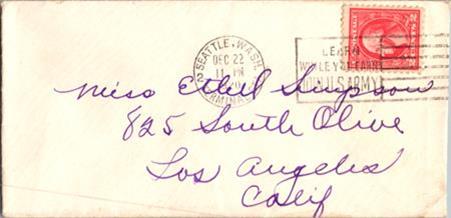 SEATTLE, WASH.
DEC 22
11 PM
TERMINAL
2
LEARN
WHILE YOU EARN
JOIN U.S. ARMY
2 CENTS 2
Miss Ethel Simpson
825 South Olive
Los Angeles
Calif